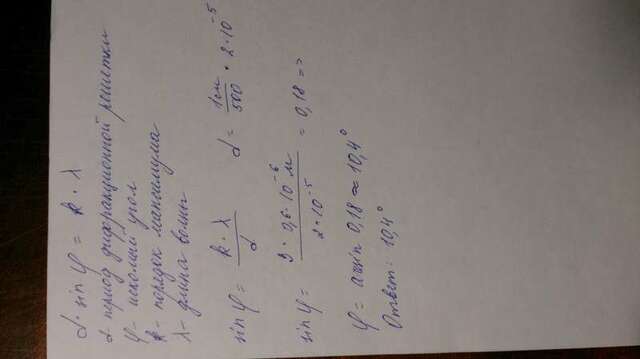 d · sin φ = k · λ
d - период дифракционной решетки
φ - искомый угол
k - порядок максимума
λ - длина волны
sin φ = k · λ / d   d = 1см / 500 = 2 · 10⁻⁵
sin φ = 3 · 0,6 · 10⁻⁶ м / 2 · 10⁻⁵ = 0,18 =>
φ = arcsin 0,18 ≈ 10,4°
Ответ: 10,4°